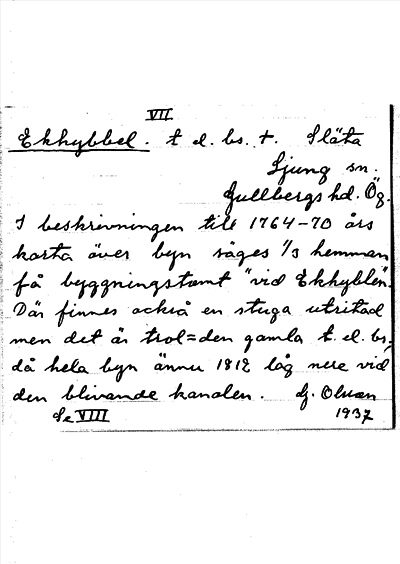 VII
Ekhybbel. t el. bs. t. Släta
Ljung sn.
Gullbergs hd. Ög.
I beskrivningen till 1764-70 års
karta över byn säges 1/3 hemman
få byggningstomt "vid Ekhyblen".
Där finnes också en stuga utritad
men det är trol=den gamla t. el. bs,
då hela byn ännu 1812 låg nere vid
den blivande kanalen. G. Olson
Se VIII 1937